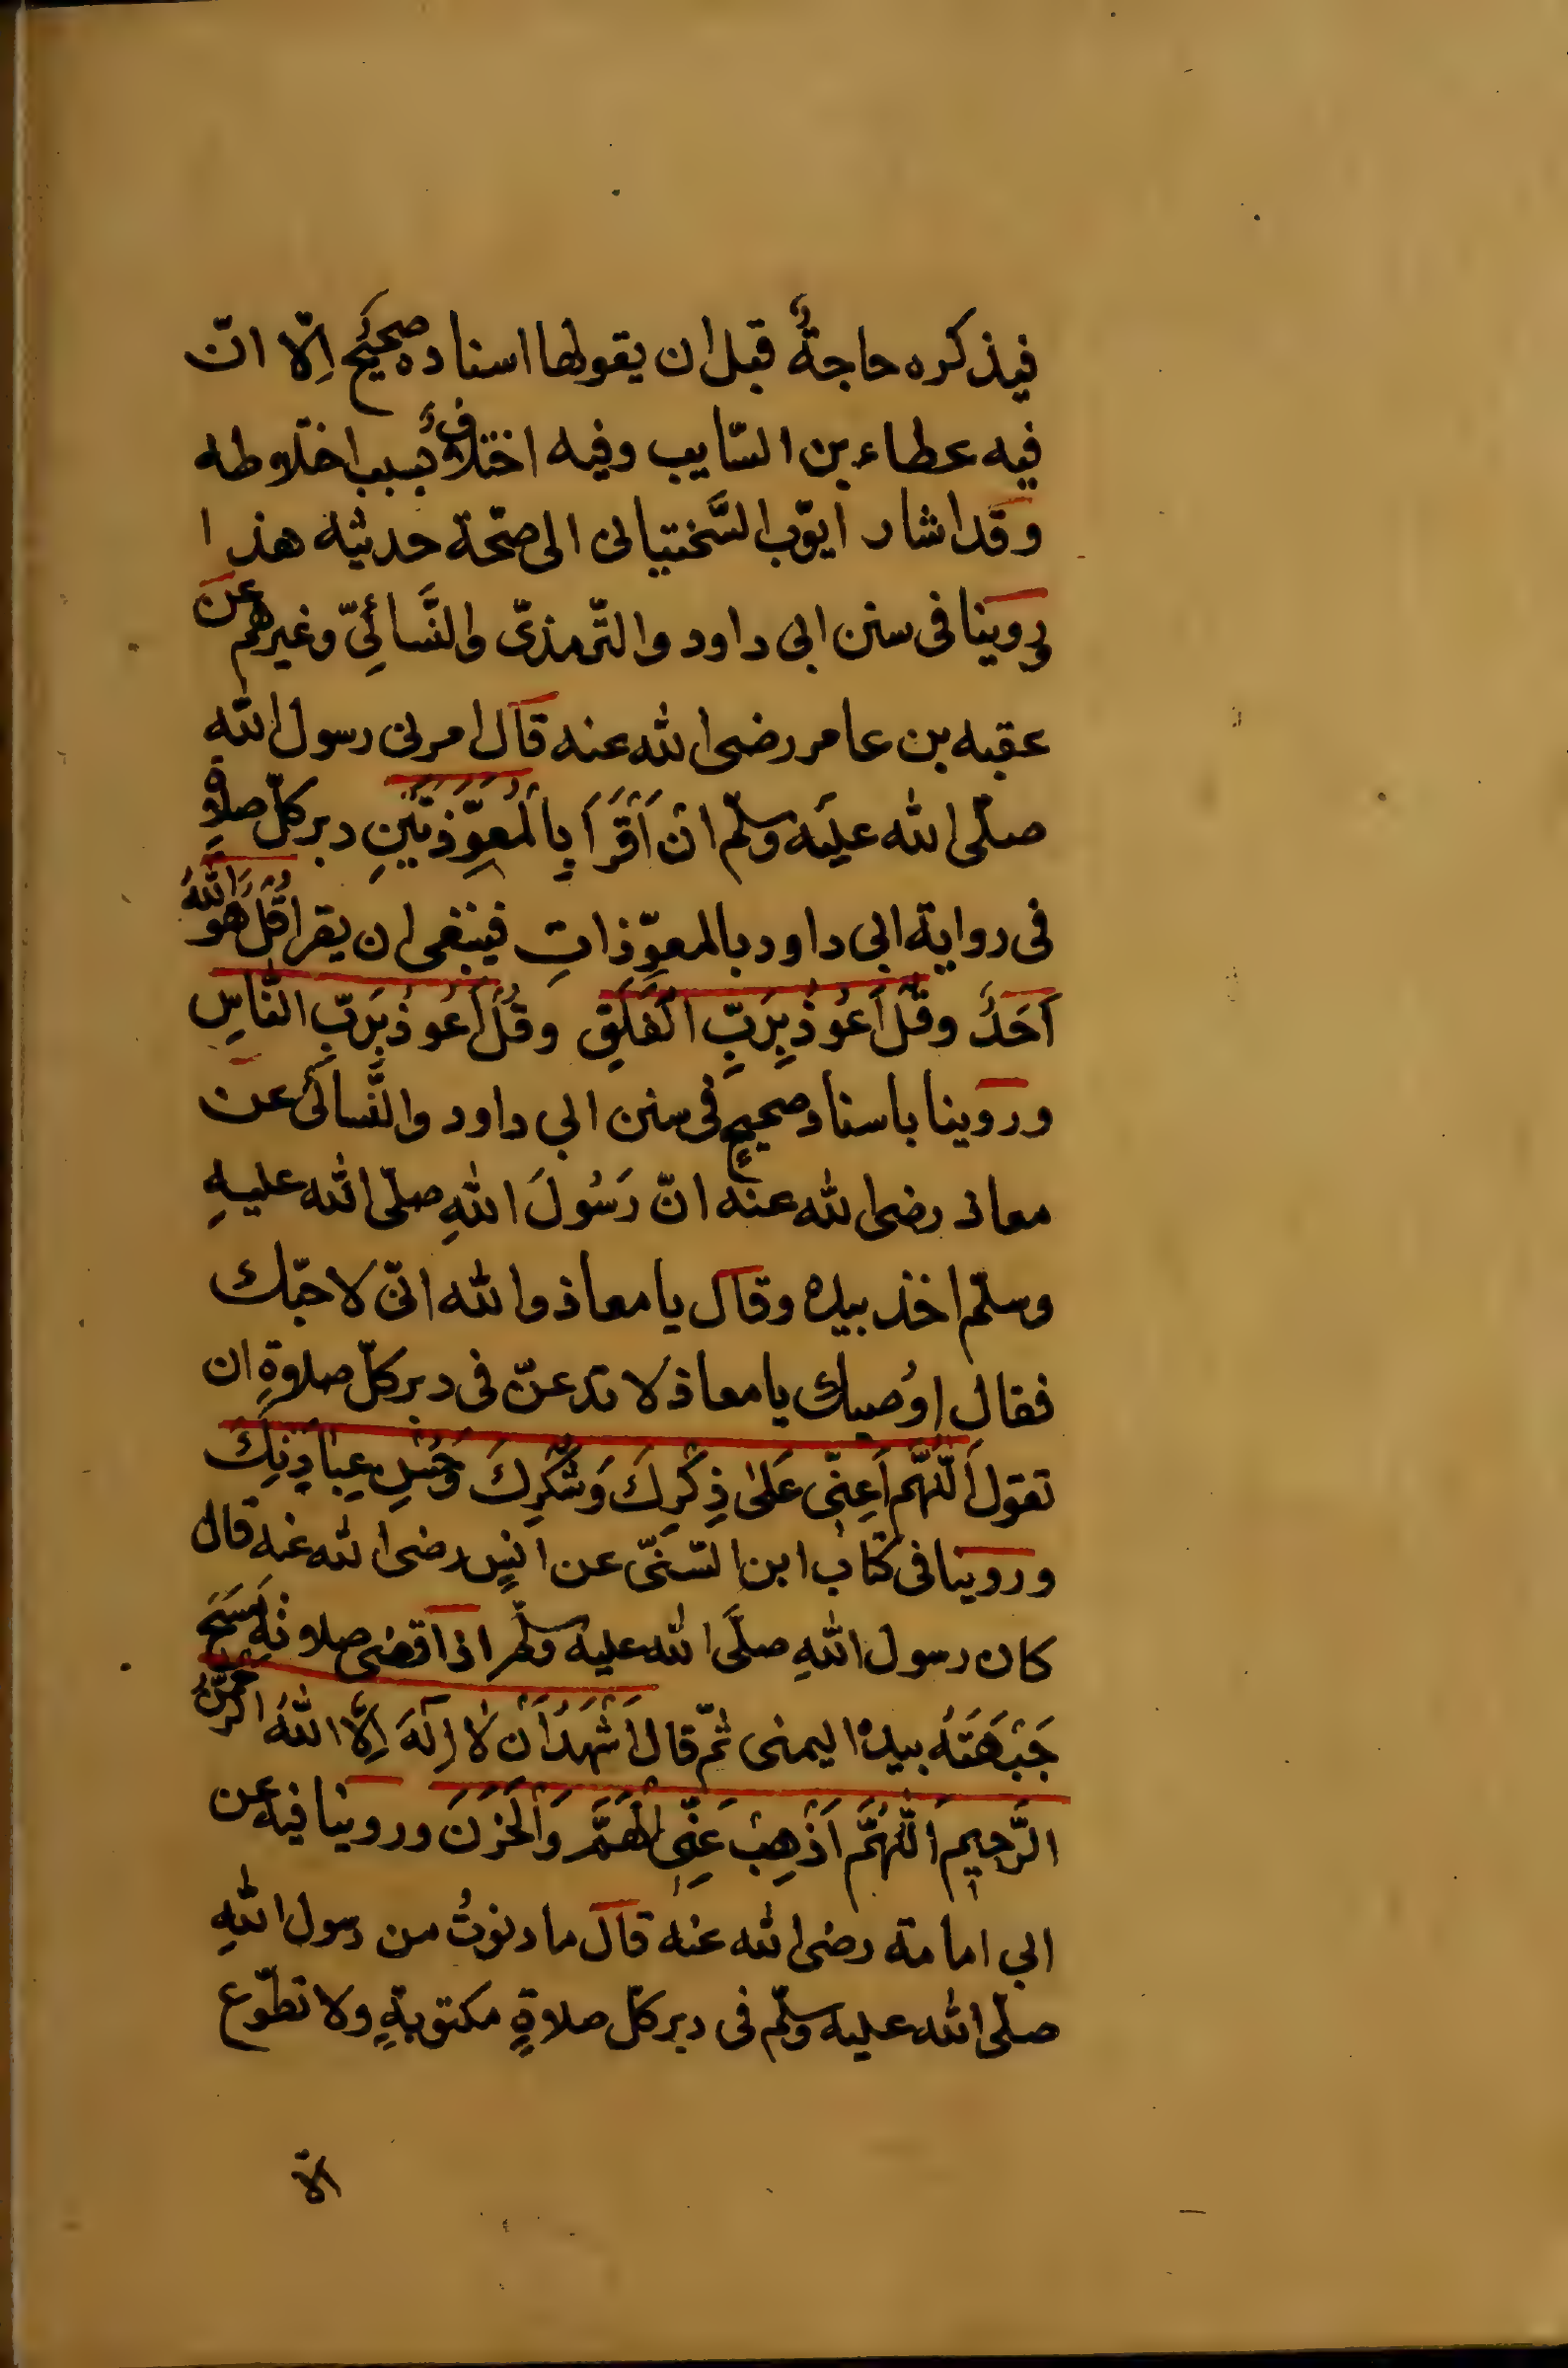 فيذكره حاجةً قبل ان يقولها اسناده صحيحٌ اِلّا انّ
فيه عطاء بن السّايب وفيه اختلافٌ بسبب اختلاطه
وقد اشار ايّوب السَّختيانى الى صحّة حديثه هذا
وروينا فى سنن ابى داود والتّرمذىّ والنَّسائِىّ وغيرهم عن
عقبه بن عامر رضى الله عنه قال امرنى رسول اللهِ
صلّى الله عليه وسلّم ان اَقْرَاَ بِالْمُعَوِّذَتَيْنِ دبر كلّ صلاةٍ
فى رواية ابى داود بالمعوِّذاتِ فينبغى ان يقرا قُلْ هُوَ اللهُ
اَحَدٌ وقُلْ اَعُوذُ بِرَبِّ الْفَلَقِ وقُلْ اَعُوذُ بِرَبِّ النَّاسِ
وروينا باسنادٍ صحيحٍ فى سنن ابى داود والنَّسائى عن
معاذ رضى الله عنه انّ رَسُولَ اللهِ صلّى الله عليهِ
وسلّم اخذ بيده وقال يا معاذ والله انّى لاحبّك
فقال اوُصيك يا معاذ لا تدعنّ فى دبر كلّ صلاوةٍ ان
تقول اَللّٰهُمَّ اَعِنِّى عَلىٰ ذِكْرِكَ وَشُكْرِكَ وَحُسْنِ عِبَادَتِكَ
وروينا فى كتاب ابن السّنّىّ عن انسٍ رضى الله عنه قال
كان رسول اللهِ صلَّى الله عليه وسلّم اذا قضى صلاوتهِ مَسَحَ
جَبْهَتَهُ بيده اليمنى ثمّ قال اَشْهَدُ اَنْ لَا اِلٰهَ اِلَّا اللهُ الرَّحْمٰنُ
الرَّحيم اَللّٰهُمَّ اَذْهِبْ عَنِّى الْهَمَّ وَالْحَزَنَ وروينا فيه عن
ابى امامة رضى الله عنه قال ما دنوتُ من رسول اللهِ
صلّى الله عليه وسلّم فى دبر كلّ صلاوةٍ مكتوبةٍ ولا تطوّع
الّا